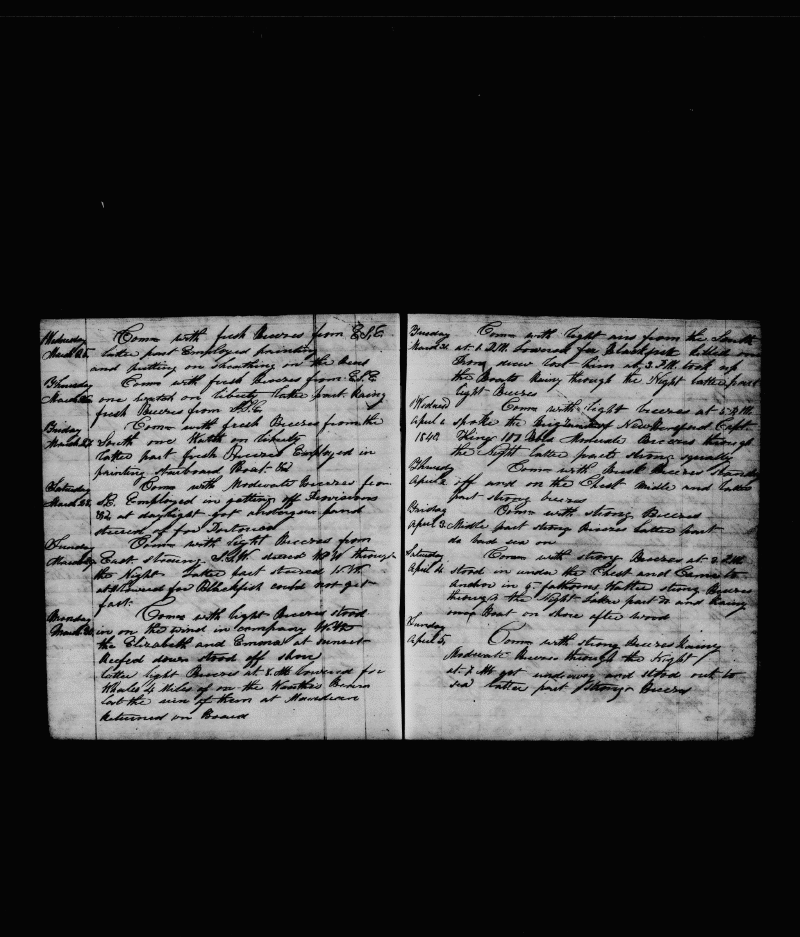 Wednesday Comm with fresh Breezes from E.S.E
March 25 latter part Employed painting
and putting on sheathing on the
Thursday Comm with fresh Breezes from E.S.E
March 26 one watch on liberty latter part Rainy
fresh Breezes from S.E
Friday Comm with fresh Breezes from the
March 27 South one Watch on liberty
latter part fresh Breezes Employed in
painting Starboard Boat &c
Saturday Comm with Moderate Breezes from
March 28 S.E. Employed in getting off
&c at daylight got and
steered of for
Sunday Comm with light Breezes from
March 29 East steering S.S.W. through
the Night latter part steered
at lowered for Blackfish could not get
fast
Monday Comm with light Breezes stood
March 30 in on the wind in company With
the Elizabeth and Emma at sunset
Reefed down stood off shore
latter light Breezes at 8 AM lowered for
Whales 4 Miles of on the Weather Beam
lost the run of them at
Returned on Board
Tuesday Comm with light airs from the South
March 31 at 1 P.M. lowered for Blackfish killed one
from him at 3 P.M. took up
the Boats Rainy through the Night latter part
light Breezes
Wednesd Comm with light breezes at 5 P.M
April 1 spoke the of New Bedford Capt
1840 100 Bbls Moderate Breezes through
the Night latter parts strong squally
Thursday Comm with Brisk Breezes
April 2 off and on the Middle and latter
part strong breezes
Friday Comm with strong Breezes
April 3 Middle part strong Breezes latter part
do bad sea on
Saturday Comm with strong Breezes at 3 P.M
April 4 stood in under the and Came to
anchor in 9 fathoms Water strong Breezes
through the Night latter part and Rainy
Boat on shore after wood
Sunday Comm with strong Breezes Rainy
April 5 Moderate Breezes through the Night
at 7 AM got underway and stood out to
sea latter part strong Breezes